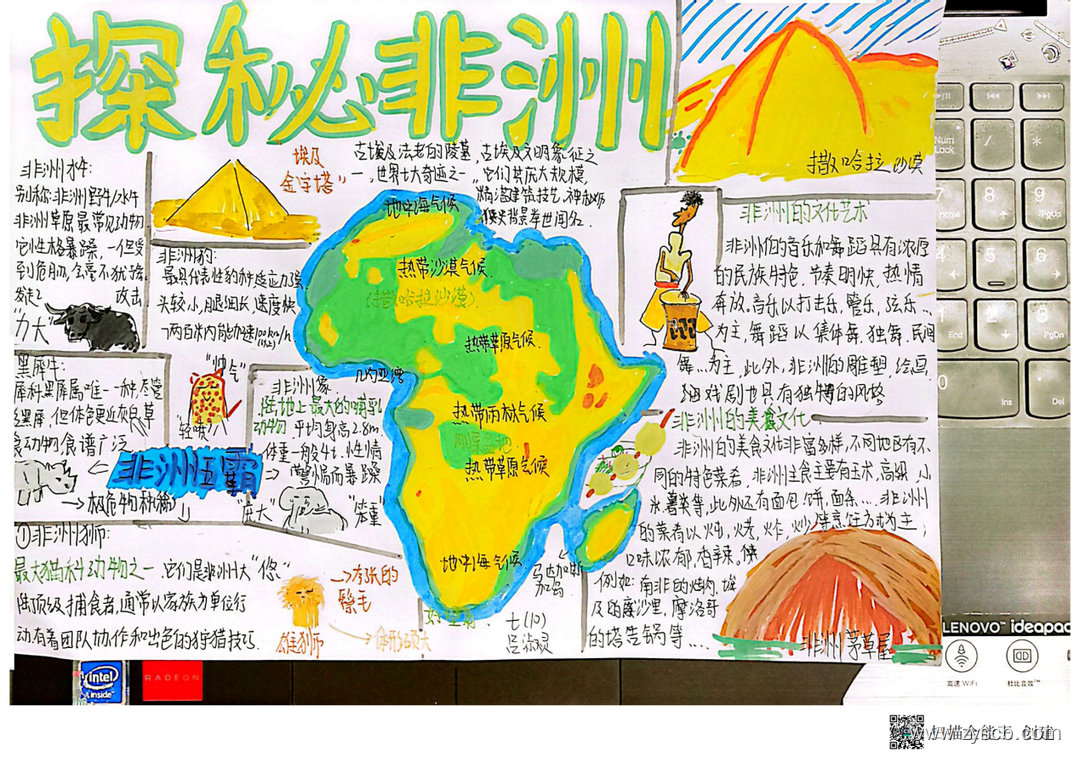 探秘非洲
撒哈拉沙漠
埃及
金字塔
古埃及法老的陵墓,古埃及文明象征之
一,世界七大奇迹之一,它们其庞大规模,
精湛建筑技艺,神秘
背景举世闻名.
非洲水牛:
别称:非洲野牛/水牛
非洲草原最常见动物
它性格暴躁,一但受
到危肋,会毫不犹豫
发起
攻击
"力大"
非洲豹:
最具代表性豹种适应力强
头较小,腿细长,速度快
两百米内可加速100km/h
黑犀牛:
犀科黑犀属唯一一种,尽管
但体色更近灰白,草
食动物食谱广泛
→极危物种
"帅气"
"轻喷"
非洲五霸
非洲象
陆地上最大的哺乳
动物 平均身高2.8m
体重一般4t.性情
而暴躁
"庞大"
"笨重"
①非洲狮:
最大猫科动物之一.它们是非洲大
陆顶级捕食者,通常以家族为单位行
动有着团队协作和出色的狩猎技巧.
→夸张的
鬃毛
雄狮
地中海气候
热带沙漠气候
(撒哈拉沙漠)
热带草原气候
几内亚湾
热带雨林气候
热带草原气候
地中海气候
马达加斯
加岛
好望角
七(10)
非洲的文化艺术
非洲的音乐和舞蹈具有浓厚
的民族特色,节奏明快,热情
奔放.音乐以打击乐,管乐,弦乐...
为主,舞蹈以集体舞,独舞,民间
舞...为主,此外,非洲的雕塑,绘画,
戏剧也具有独特的风格
非洲的美食文化
非洲的美食文化非富多样,不同地区有不
同的特色菜肴,非洲主食主要有玉木,高粱,小
米,薯类等,此外还有面包,饼,面条...非洲州
的菜肴以炖,烤,炸,炒等烹饪方式为主,
口味浓郁,香辣.
例如:南非的炖肉,埃
及的蘑沙里,摩洛哥
的塔吉锅等...
非洲茅草屋
Num
Lock
/
*
7
Home
8
9
PgUp
4
5
6
1
End
2
3
PgDn
0
Ins
Del
LENOVO™ ideapad
高速 WiFi
杜比音效™
intel
inside
RADEON
扫描全能王 创建
www.zyscb.com